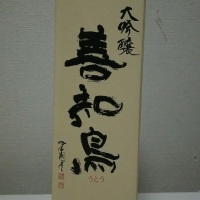 大吟醸
善知鳥
うとう